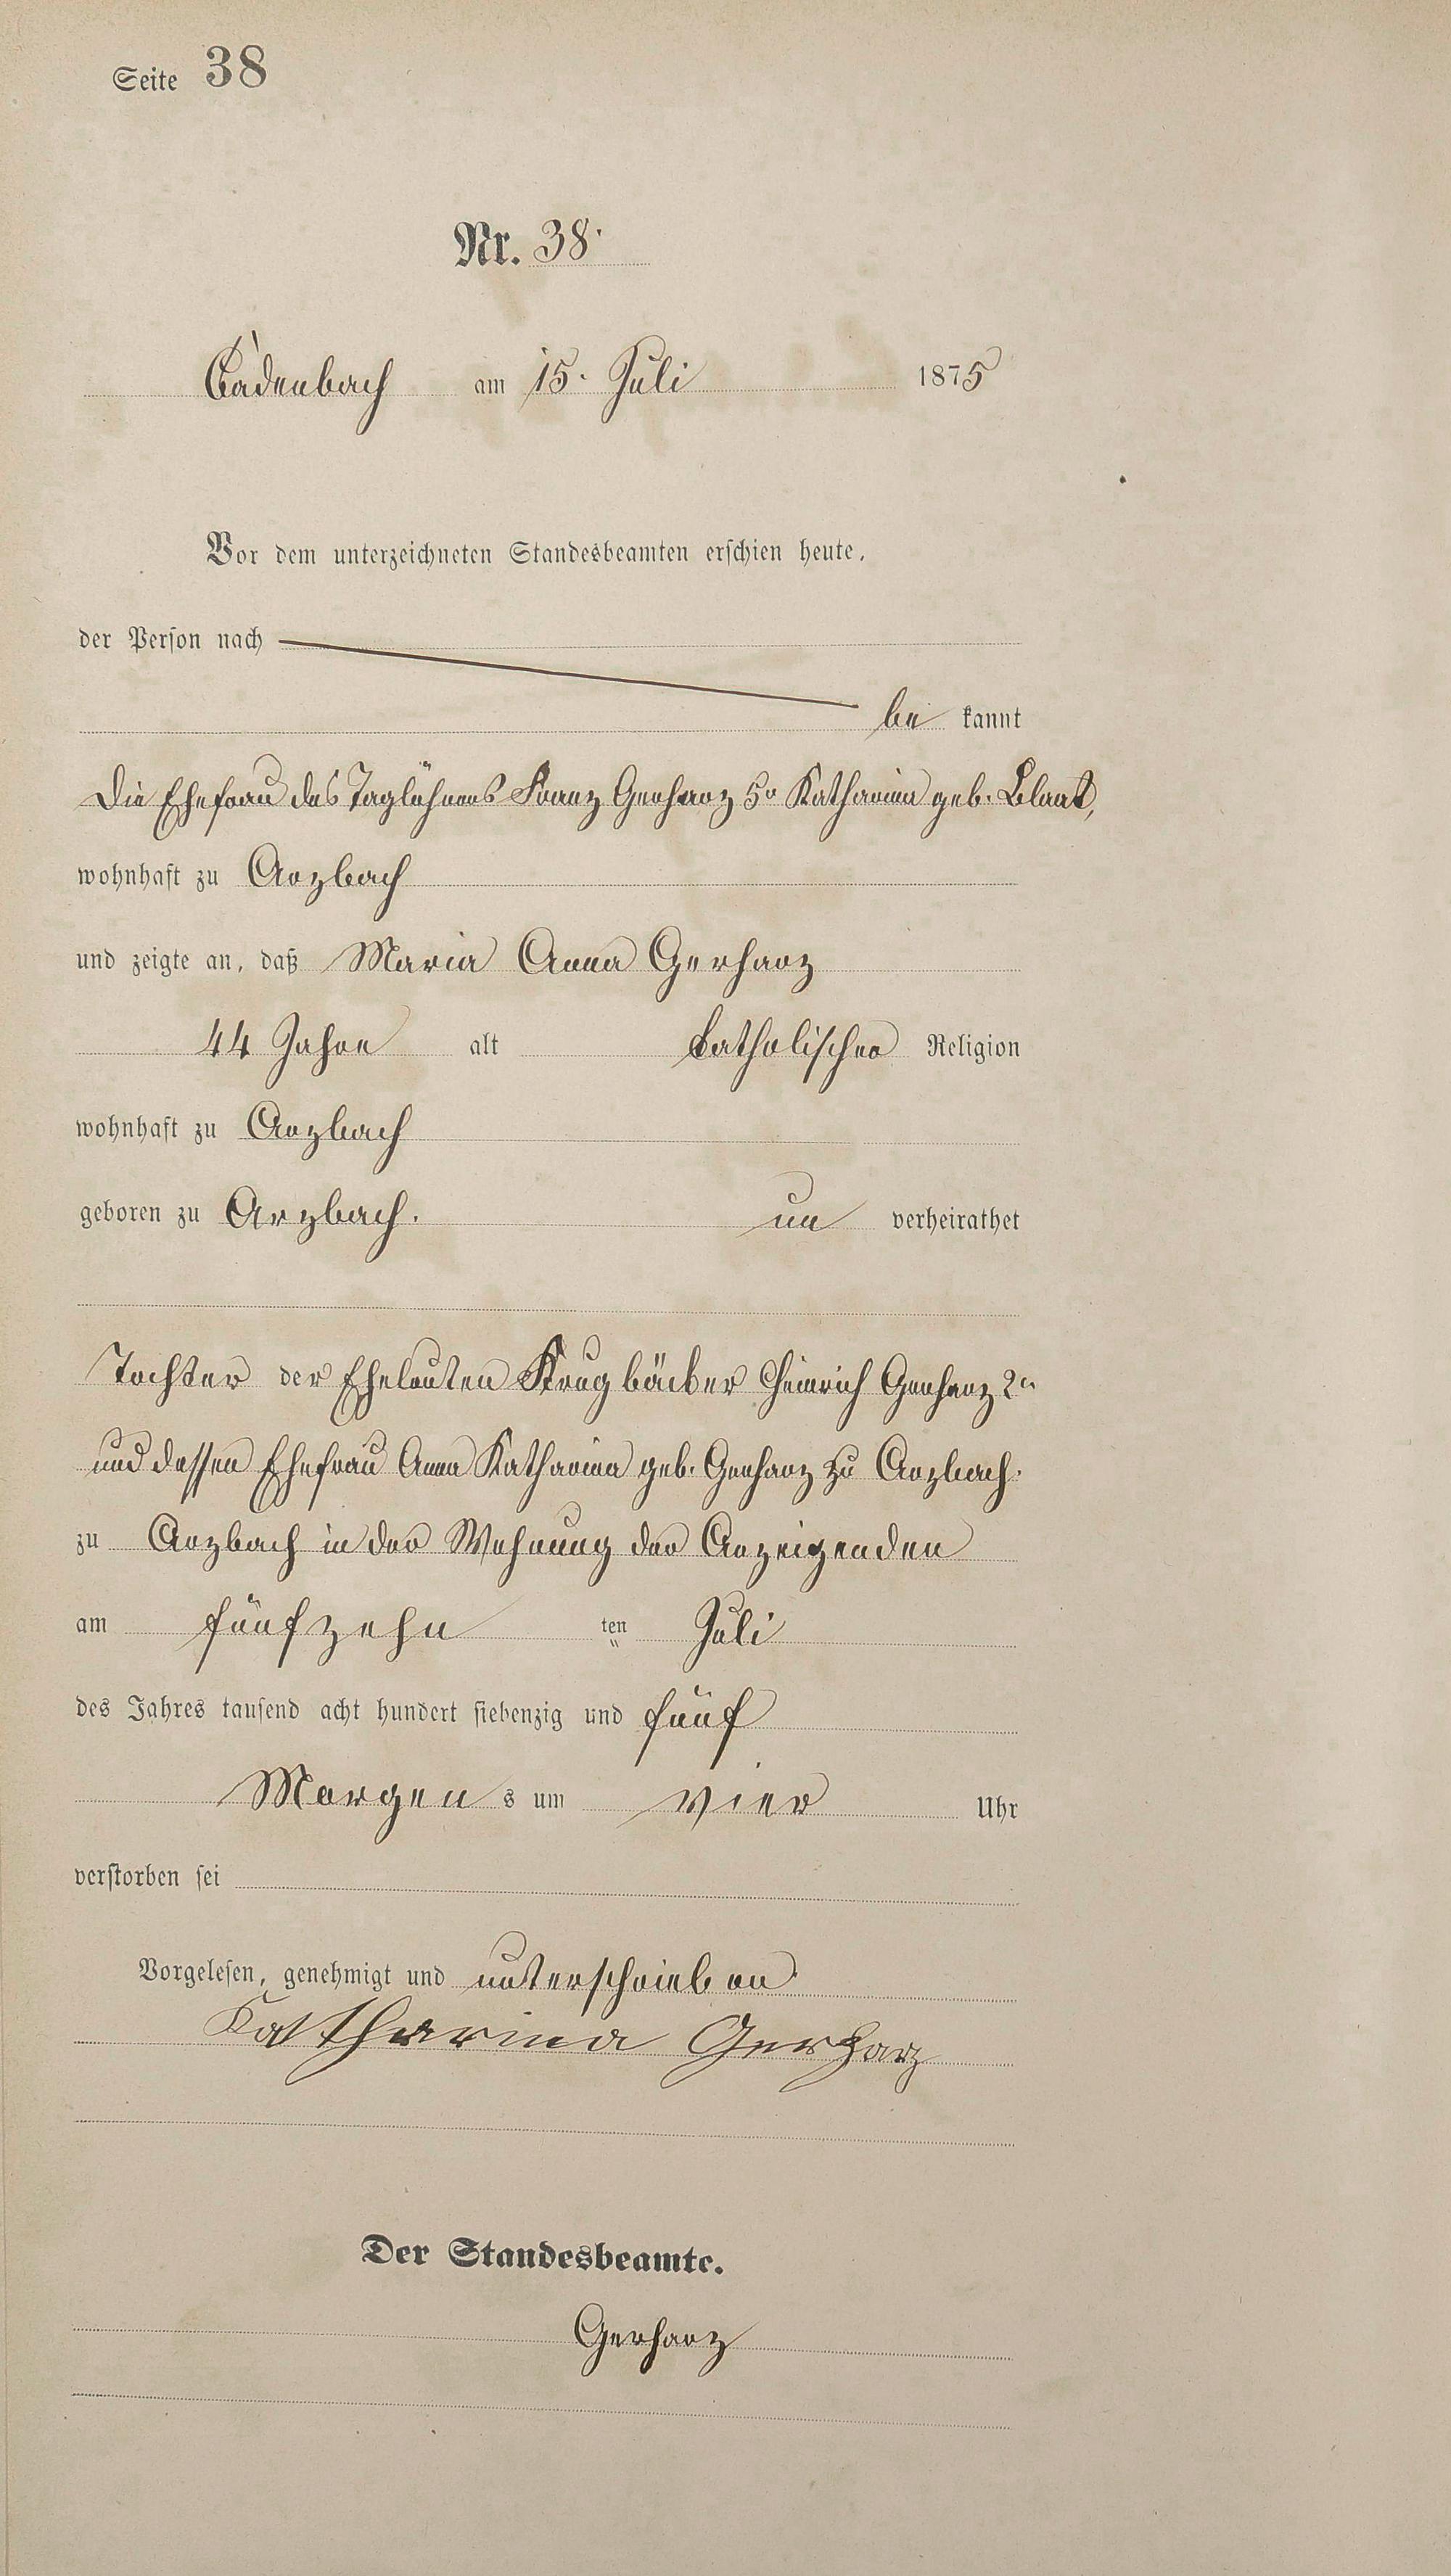 Seite 38
Nr. 38.
Cadenbach am 15. Juli 1875
Vor dem unterzeichneten Standesbeamten erschien heute,
der Person nach
be kannt
Die Ehefrau des Taglöhners Franz Gerharz 5r Katharina geb. Blaat,
wohnhaft zu Arzbach
und zeigte an, daß Maria Anna Gerharz
44 Jahre alt katholischer Religion
wohnhaft zu Arzbach
geboren zu Arzbach. un verheirathet
Tochter der Eheleuten Krugbäcker Heinrich Gerharz 2r
und dessen Ehefrau Anna Katharina geb. Gerharz zu Arzbach.
zu Arzbach in der Wohnung der Anzeigenden
am fünfzehn ten Juli
des Jahres tausend acht hundert siebenzig und fünf
Morgen s um vier Uhr
verstorben sei
Vorgelesen, genehmigt und unterschrieben
Katharina Gerharz
Der Standesbeamte.
Gerharz